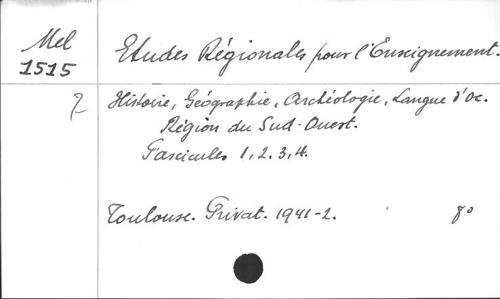 Mel
1515
Etudes Régionales pour l'Enseignement.
Histoire, Géographie, Archéologie, Langue d'Oc.
Région du Sud-Ouest.
Fascicules 1, 2, 3, 4.
Toulouse. Privat. 1941-2. 8°